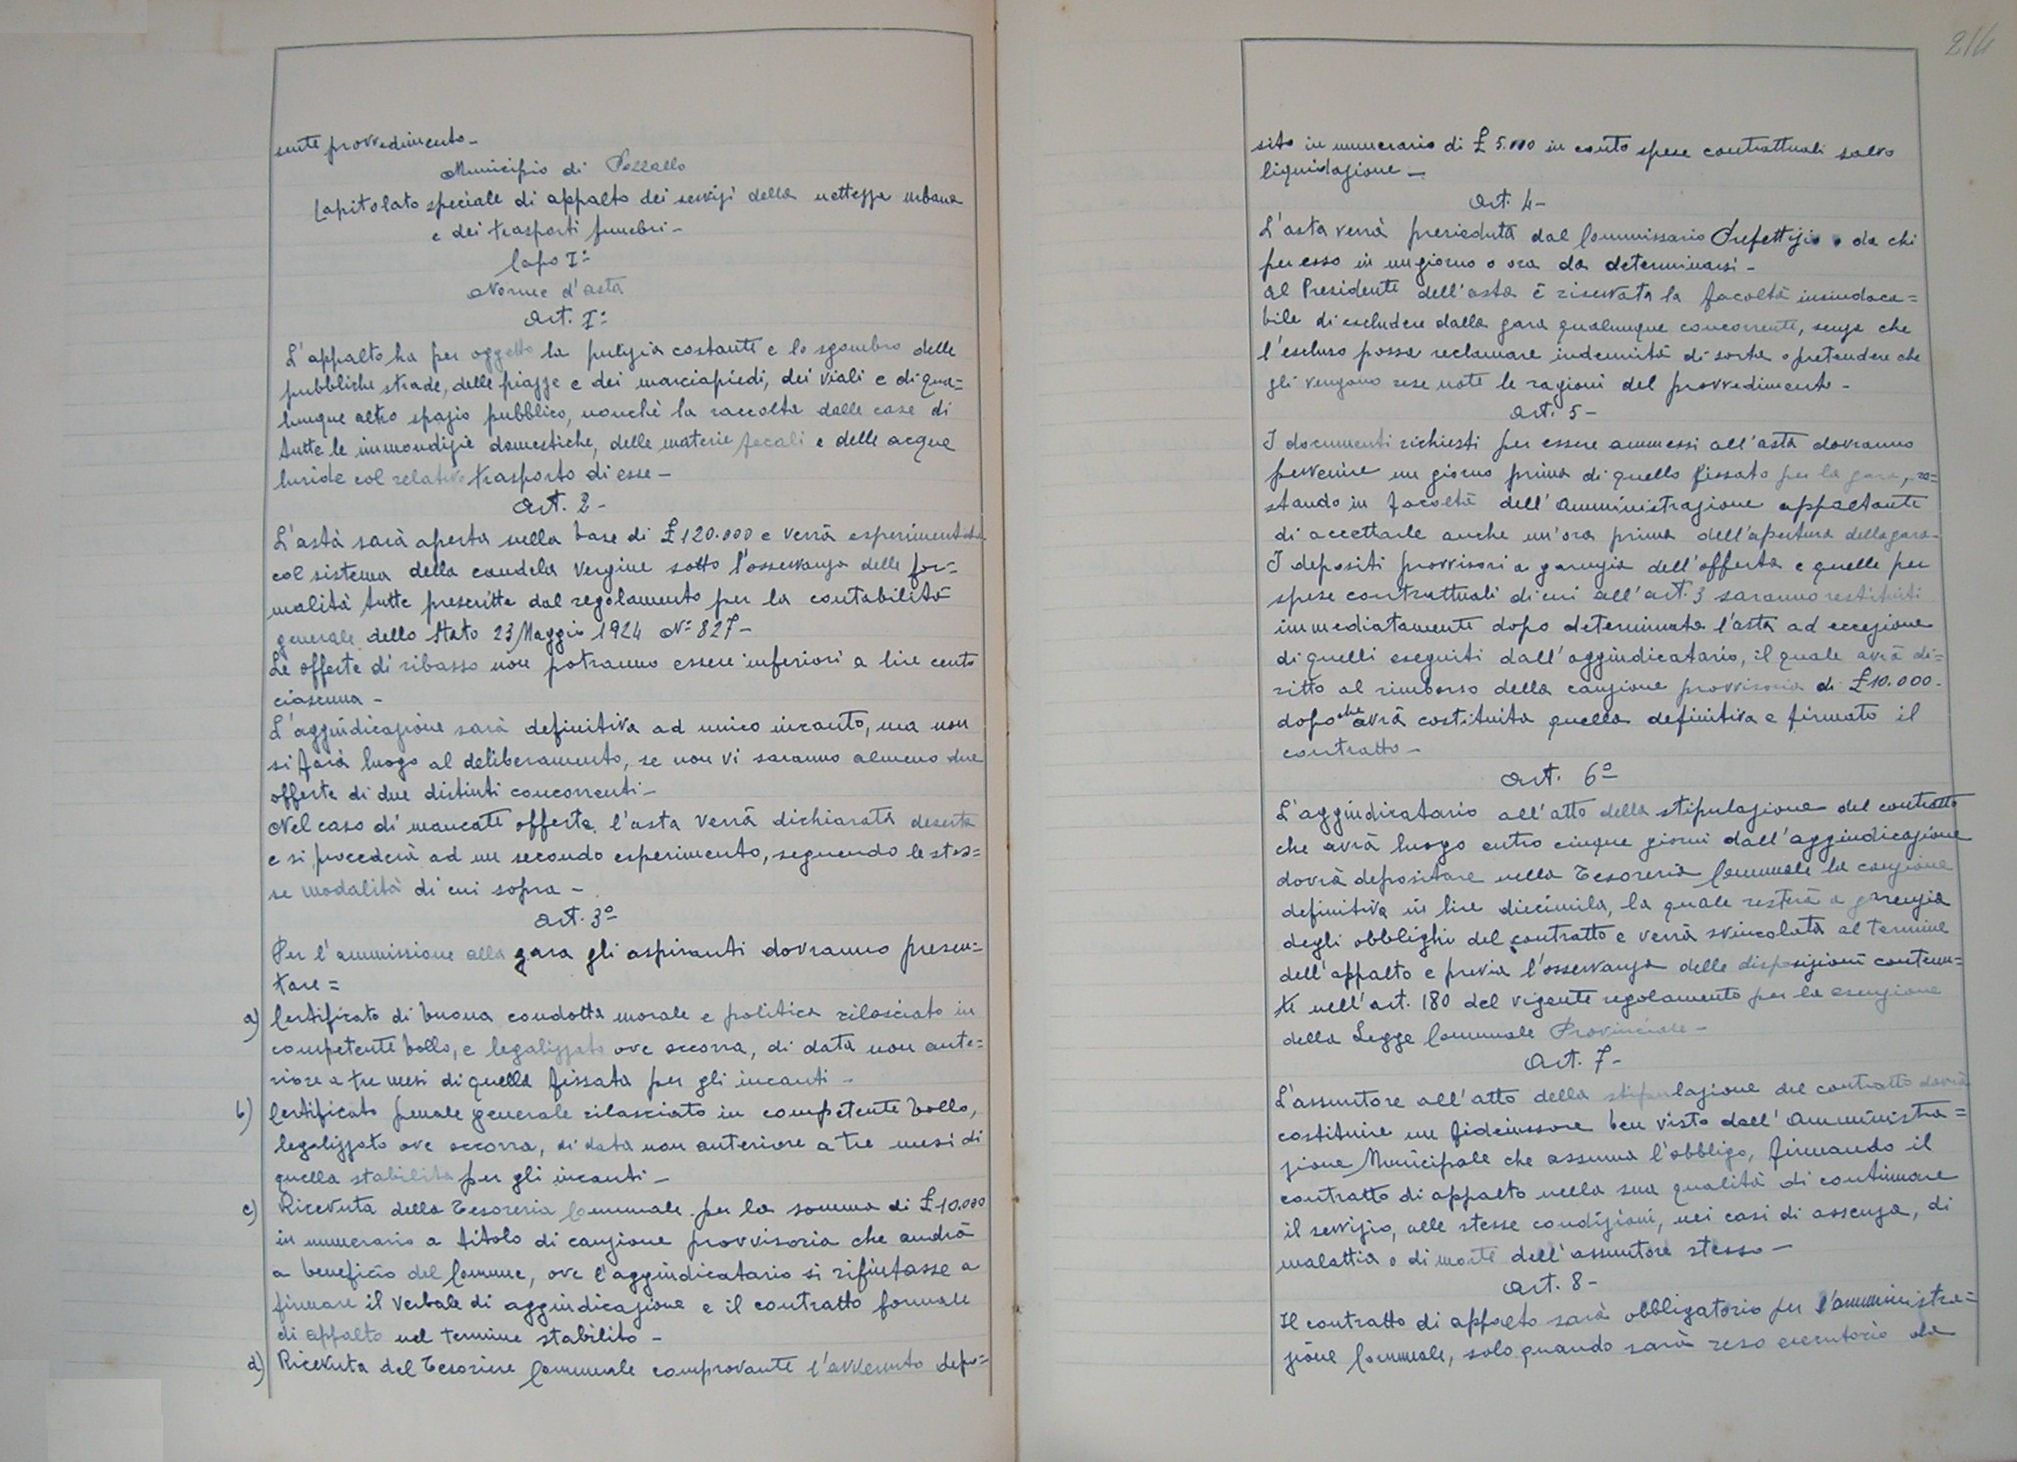 sente provvedimento -
Municipio di
Capitolato speciale di appalto dei servizi della nettezza urbana
e dei trasporti funebri -
Capo I°
Norme d'asta
Art. I°
L'appalto ha per oggetto la pulizia costante e lo sgombro delle
pubbliche strade, delle piazze e dei marciapiedi, dei viali e di qua=
lunque altro spazio pubblico, nonchè la raccolta dalle case di
tutte le immondizie domestiche, delle materie fecali e delle acque
luride col relativo trasporto di esse -
Art. 2 -
L'asta sarà aperta sulla base di £ 120.000 e verrà esperimentata
col sistema della candela vergine sotto l'osservanza delle for=
malità tutte prescritte dal regolamento per la contabilità
generale dello Stato 23 Maggio 1924 N° 827 -
Le offerte di ribasso non potranno essere inferiori a lire cento
ciascuna -
L'aggiudicazione sarà definitiva ad unico incanto, ma non
si farà luogo al deliberamento, se non vi saranno almeno due
offerte di due distinti concorrenti -
Nel caso di mancate offerte, l'asta verrà dichiarata deserta
e si procederà ad un secondo esperimento, seguendo le stes=
se modalità di cui sopra -
Art. 3°
Per l'ammissione alla gara gli aspiranti dovranno presen=
tare =
a) Certificato di buona condotta morale e politica rilasciato in
competente bollo, e legalizzato ove occorra, di data non ante=
riore a tre mesi di quella fissata per gli incanti -
b) Certificato penale generale rilasciato in competente bollo,
legalizzato ove occorra, di data non anteriore a tre mesi di
quella stabilita per gli incanti -
c) Ricevuta della Tesoreria Comunale per la somma di £ 10.000
in numerario a titolo di cauzione provvisoria che andrà
a beneficio del Comune, ove l'aggiudicatario si rifiutasse a
firmare il verbale di aggiudicazione e il contratto formale
di appalto nel termine stabilito -
d) Ricevuta del Tesoriere Comunale comprovante l'avvenuto depo=
214
sito in numerario di £ 5.000 in conto spese contrattuali salvo
liquidazione -
Art. 4 -
L'asta verrà presieduta dal Commissario Prefettizio o da chi
per esso in un giorno o ora da determinarsi -
Al Presidente dell'asta è riservata la facoltà insindaca=
bile di escludere dalla gara qualunque concorrente, senza che
l'escluso possa reclamare indennità di sorta o pretendere che
gli vengano rese note le ragioni del provvedimento -
Art. 5 -
I documenti richiesti per essere ammessi all'asta dovranno
pervenire un giorno prima di quello fissato per la gara, re=
stando in facoltà dell'Amministrazione appaltante
di accettarle anche un'ora prima dell'apertura della gara -
I depositi provvisori a garanzia dell'offerta e quelle per
spese contrattuali di cui all'art. 3 saranno restituiti
immediatamente dopo determinata l'asta ad eccezione
di quelli eseguiti dall'aggiudicatario, il quale avrà di=
ritto al rimborso della cauzione provvisoria di £ 10.000 -
dopo che avrà costituita quella definitiva e firmato il
contratto -
Art. 6°
L'aggiudicatario all'atto della stipulazione del contratto
che avrà luogo entro cinque giorni dall'aggiudicazione
dovrà depositare nella Tesoreria Comunale la cauzione
definitiva in lire diecimila, la quale resterà a garanzia
degli obblighi del contratto e verrà svincolata al termine
dell'appalto e previa l'osservanza delle disposizioni contenu=
te nell'art. 180 del vigente regolamento per la esecuzione
della Legge Comunale Provinciale -
Art. 7 -
L'assuntore all'atto della stipulazione del contratto dovrà
costituire un fideiussore ben visto dall'Amministra=
zione Municipale che assuma l'obbligo, firmando il
contratto di appalto nella sua qualità di continuare
il servizio, alle stesse condizioni, nei casi di assenza, di
malattia o di morte dell'assuntore stesso -
Art. 8 -
Il contratto di appalto sarà obbligatorio per l'amministra=
zione Comunale, solo quando sarà reso esecutorio da